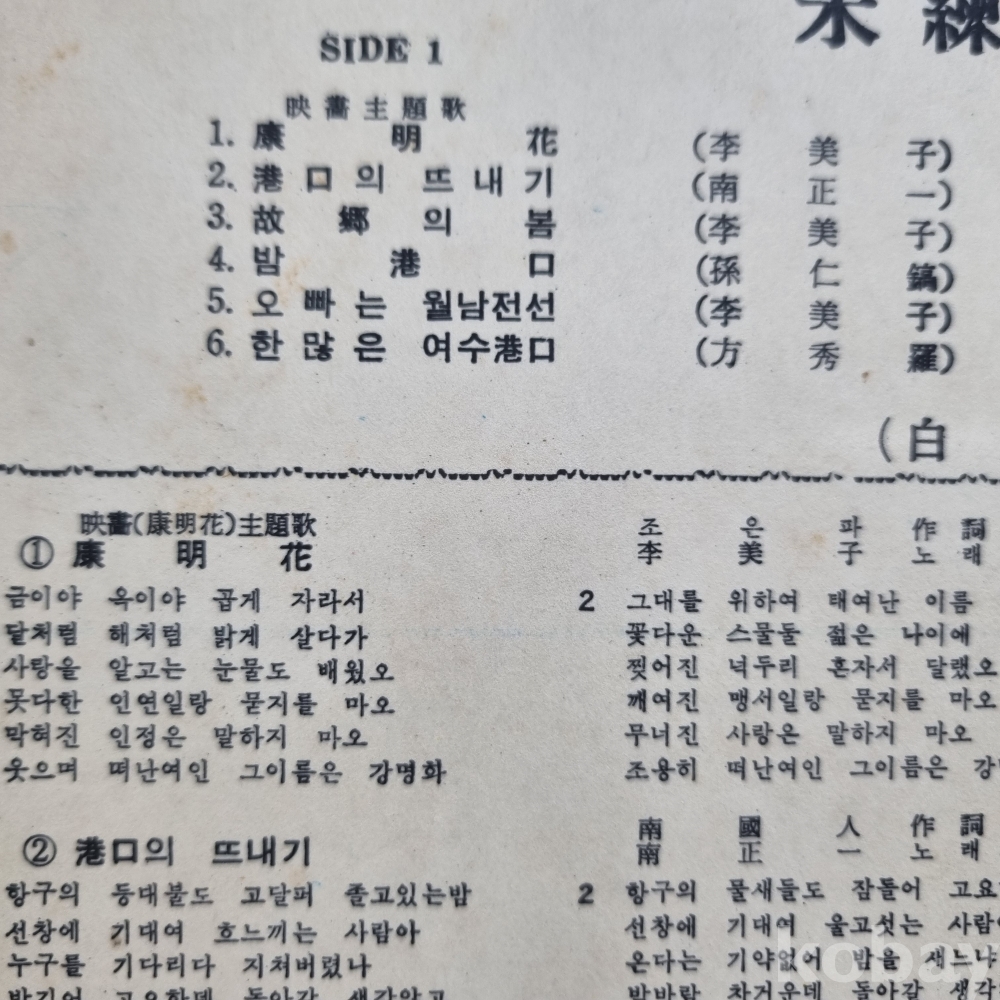 未練
SIDE 1
映畵主題歌
1. 康明花 (李美子)
2. 港口의 뜨내기 (南正一)
3. 故鄕의 봄 (李美子)
4. 밤港口 (孫仁鎬)
5. 오빠는 월남전선 (李美子)
6. 한많은 여수港口 (方秀羅)
(白
映畵(康明花)主題歌
① 康明花
조은파 作詞
李美子 노래
금이야 옥이야 곱게 자라서
달처럼 해처럼 밝게 살다가
사랑을 알고는 눈물도 배웠오
못다한 인연일랑 묻지를 마오
막혀진 인정은 말하지 마오
웃으며 떠난여인 그이름은 강명화
2 그대를 위하여 태여난 이름
꽃다운 스물둘 젊은 나이에
찢어진 넉두리 혼자서 달랬오
깨여진 맹서일랑 묻지를 마오
무너진 사랑은 말하지 마오
조용히 떠난여인 그이름은
② 港口의 뜨내기
南國人 作詞
南正一 노래
항구의 등대불도 고달퍼 졸고있는밤
선창에 기대여 흐느끼는 사람아
누구를 기다리다 지쳐버렸나
2 항구의 물새들도 잠들어
선창에 기대여 울고섯는
온다는 기약없어 밤을 새느냐
kobay